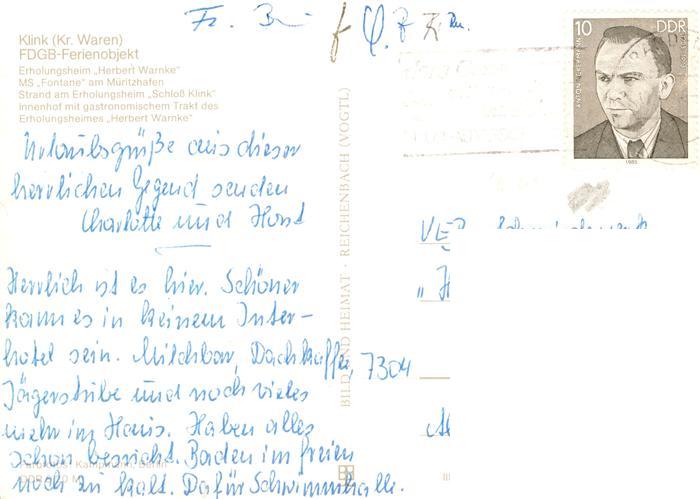 Klink (Kr. Waren)
FDGB-Ferienobjekt
Erholungsheim „Herbert Warnke"
MS „Fontane" am Müritzhafen
Strand am Erholungsheim „Schloß Klink"
Innenhof mit gastronomischem Trakt des
Erholungsheimes „Herbert Warnke"
Urlaubsgrüße aus dieser
herrlichen Gegend senden
Charlotte und Horst
Herrlich ist es hier. Schöner
kann es in keinem Inter-
hotel sein. Milchbar, Dachkaffe,
Jägerstube und noch vieles
mehr im Haus. Haben alles
schon besucht. Baden im freien
noch zu kalt. Dafür Schwimmhalle.
BILD UND HEIMAT · REICHENBACH (VOGTL)
10 DDR
1985
7304